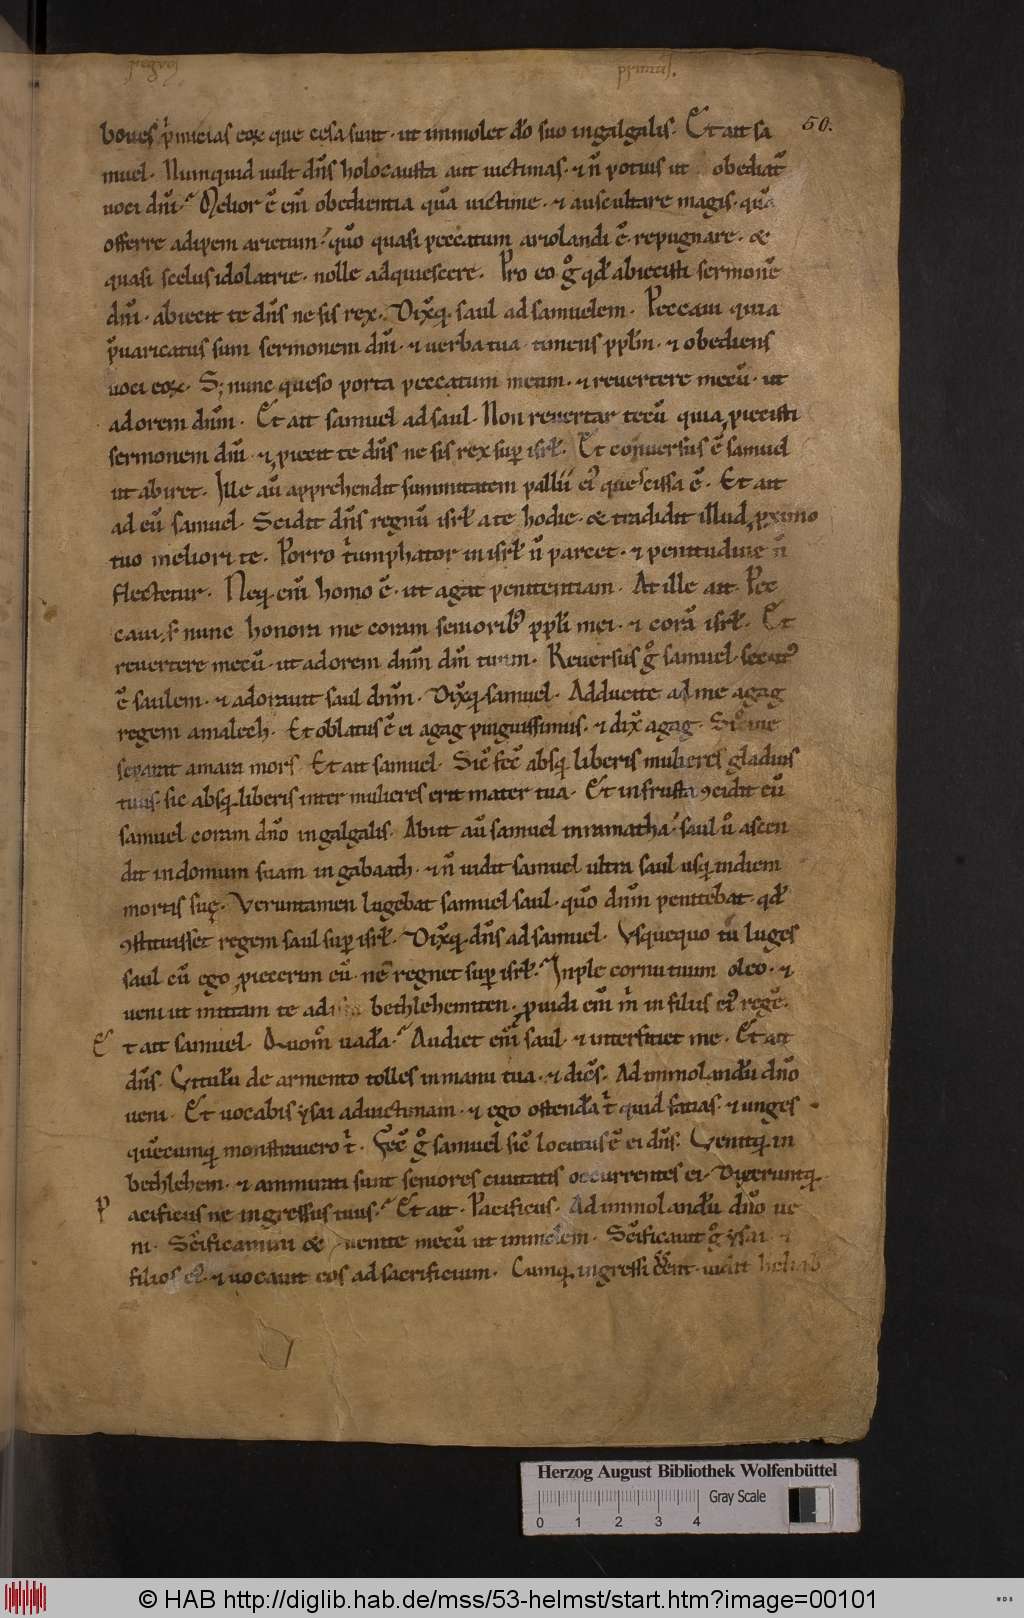 regū primus.
50.
boues p̾micias eoꝝ que cesa sunt · ut immolet dō suo in galgalis · Et ait sa
muel · Numquid uult dn̄s holocausta aut uictimas · ⁊ n̄ potius ut obediat᷑
uoci dn̄i ? Melior ē eni̅ obedientia quā uictime · ⁊ auscultare magis · quā
offerre adipem arietum ? qūo quasi peccatum ariolandi ē repugnare · &
quasi scelus idolatrie · nolle adquiescere · Pro eo gͦ qd̄ abiecisti sermonē
dn̄i · abiecit te dn̄s ne sis rex · Dixq; saul ad samuelem · Peccaui quia
p̄uaricatus sum sermonem dn̄i · ⁊ uerba tua timens ppl̄m · ⁊ obediens
uoci eoꝝ · S; nunc queso porta peccatum meum · ⁊ reuertere mecū · ut
adorem dn̄m · Et ait samuel ad saul · Non reuertar tecū quia ꝓiecisti
sermonem dn̄i · ⁊ ꝓiecit te dn̄s ne sis rex sup isrl̄ · Et conuersus ē samuel
ut abiret · Ille aū apprehendit summitatem pallii ei᷒ que ⁊ scissa ē · Et ait
ad eū samuel · Scidit dn̄s regnū isrl̄ a te hodie · & tradidit illud ꝓximo
tuo meliori te · Porro t̾umphator in isrl̄ n̄ parcet · ⁊ penitudine n̄
flectetur · Neq; eni̅ homo ē · ut agat penitentiam · At ille ait · Pec
caui · s; nunc honora me coram senioribꝰ ppl̄i mei · ⁊ corā isrl̄ · Et
reuertere mecū · ut adorem dn̄m dm̄ tuum · Reuersus gͦ samuel · secutꝰ
ē saulem · ⁊ adorauit saul dn̄m · Dixq; samuel · Adducite ad me agag
regem amalech · Et oblatus ē ei agag pinguissimus · ⁊ dix̄ agag · Siccine
separat amara mors Et ait samuel · Sic̄ fec̄ absq; liberis mulieres gladius
tuus · sic absq; liberis inter mulieres erit mater tua · Et in frusta ꝯcidit eū
samuel coram dn̄o in galgalis · Abiit aū samuel in ramatha · saul u̾o ascen
dit in domum suam in gabaath · ⁊ n̄ uidit samuel ultra saul usq; in diem
mortis suę · Veruntamen lugebat samuel saul · qūo dn̄m penitebat · qd̄
ꝯstituisset regem saul sup isrl̄ · Dixq; dn̄s ad samuel · Vsquequo tu luges
saul cū ego ꝓiecerim eū · ne regnet sup isrl̄ ? Inple cornu tuum oleo · ⁊
ueni ut mittam te ad bethlehemiten · ꝓuidi eni̅ m̾ in filiis ei᷒ regē ·
Et ait samuel · Quom̄ uadā ? Audiet eni̅ saul · ⁊ interficiet me · Et ait
dn̄s · Vitulū de armento tolles in manu tua · ⁊ dices · Ad immolandū dn̄o
ueni · Et uocabis ysai ad uictimam · ⁊ ego ostendā t̾ quid facias · ⁊ unges
quēcumq; monstrauero t̾ · Fec̄ gͦ samuel sic̄ locutus ē ei dn̄s · Venitq; in
bethlehem · ⁊ ammirati sunt seniores ciuitatis occurrentes ei · Dixeruntq;
Pacificus ne ingressus tuus ? Et ait · Pacificus · Ad immolandū dn̄o ue
ni · Sc̄ificamini & uenite mecū ut immolem · Sc̄ificauit gͦ ysai ⁊
filios ei᷒ · ⁊ uocauit eos ad sacrificium · Cumq; ingressi eēnt · uidit heliab
Herzog August Bibliothek Wolfenbüttel
Gray Scale
0 1 2 3 4
© HAB http://diglib.hab.de/mss/53-helmst/start.htm?image=00101